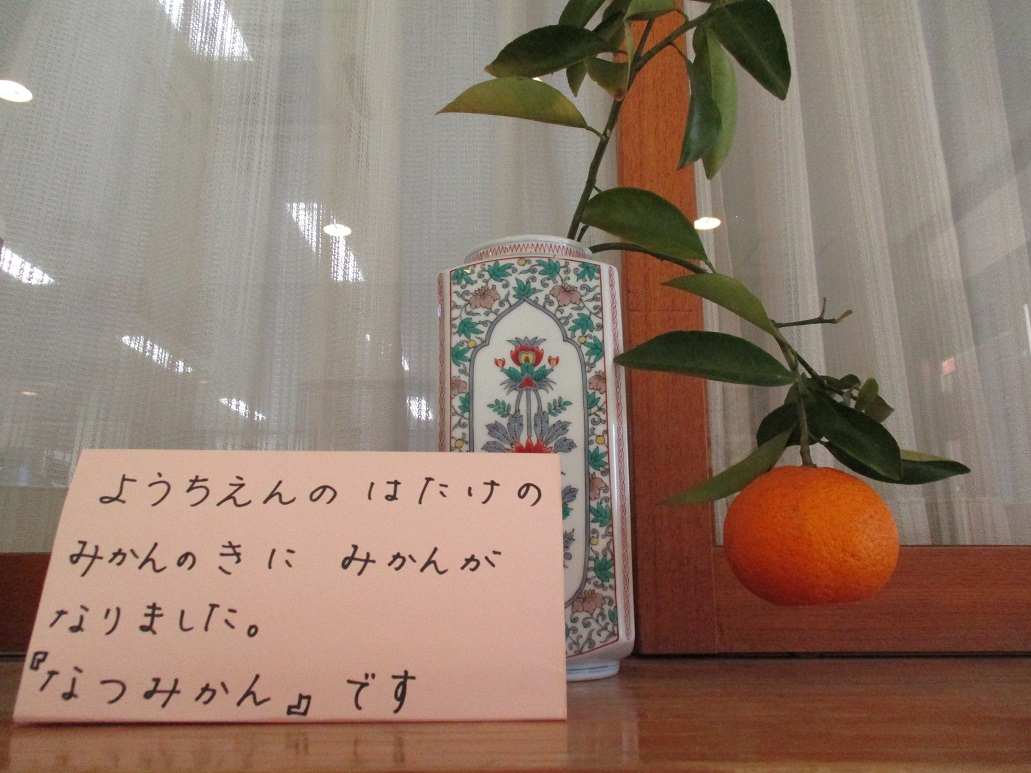 ようちえんの はたけの
みかんのきに みかんが
なりました。
『なつみかん』です